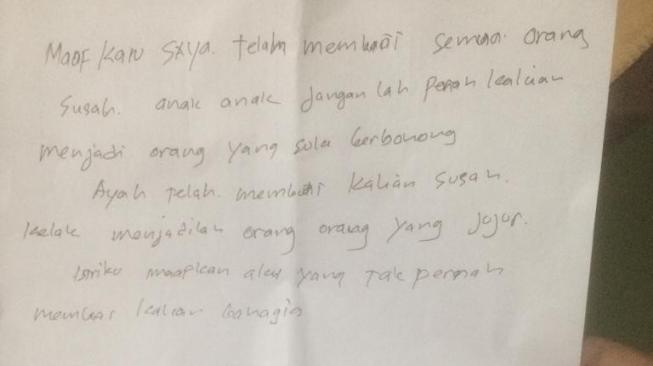 Maaf kan saya. telah membuat semua orang
susah. anak anak janganlah pernah kalian
menjadi orang yang suka berbohong
Ayah telah membuat kalian susah.
kelak menjadilah orang orang yang jujur.
istriku maapkan aku yang tak pernah
membuat kalian bahagia